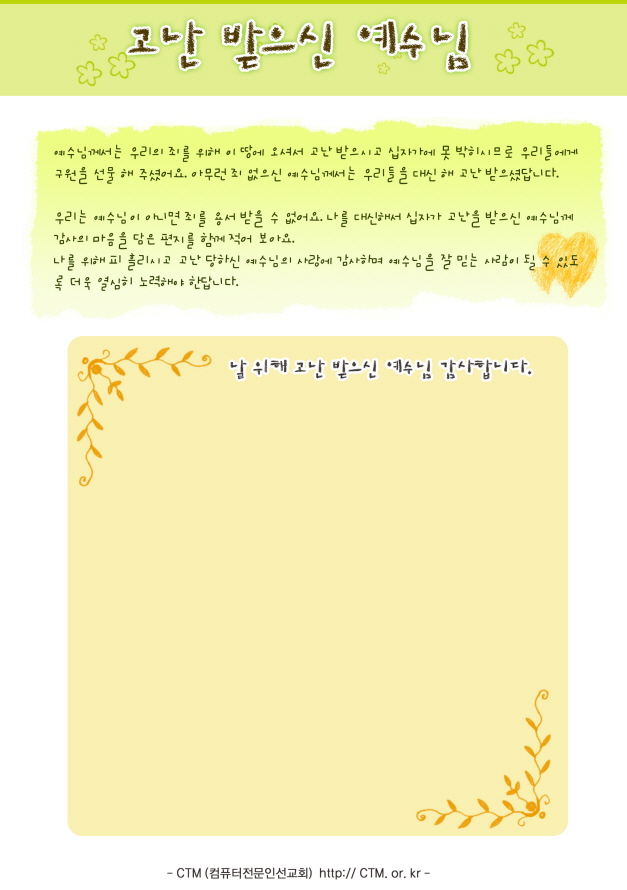 고난 받으신 예수님
예수님께서는 우리의 죄를 위해 이 땅에 오셔서 고난 받으시고 십자가에 못 박히시므로 우리들에게
구원을 선물 해 주셨어요. 아무런 죄 없으신 예수님께서는 우리들을 대신 해 고난 받으셨답니다.
우리는 예수님이 아니면 죄를 용서 받을 수 없어요. 나를 대신해서 십자가 고난을 받으신 예수님께
감사의 마음을 담은 편지를 함께 적어 보아요.
나를 위해 피 흘리시고 고난 당하신 예수님의 사랑에 감사하며 예수님을 잘 믿는 사람이 될 수 있도
록 더욱 열심히 노력해야 한답니다.
날 위해 고난 받으신 예수님 감사합니다.
- CTM (컴퓨터전문인선교회) http:// CTM. or. kr -